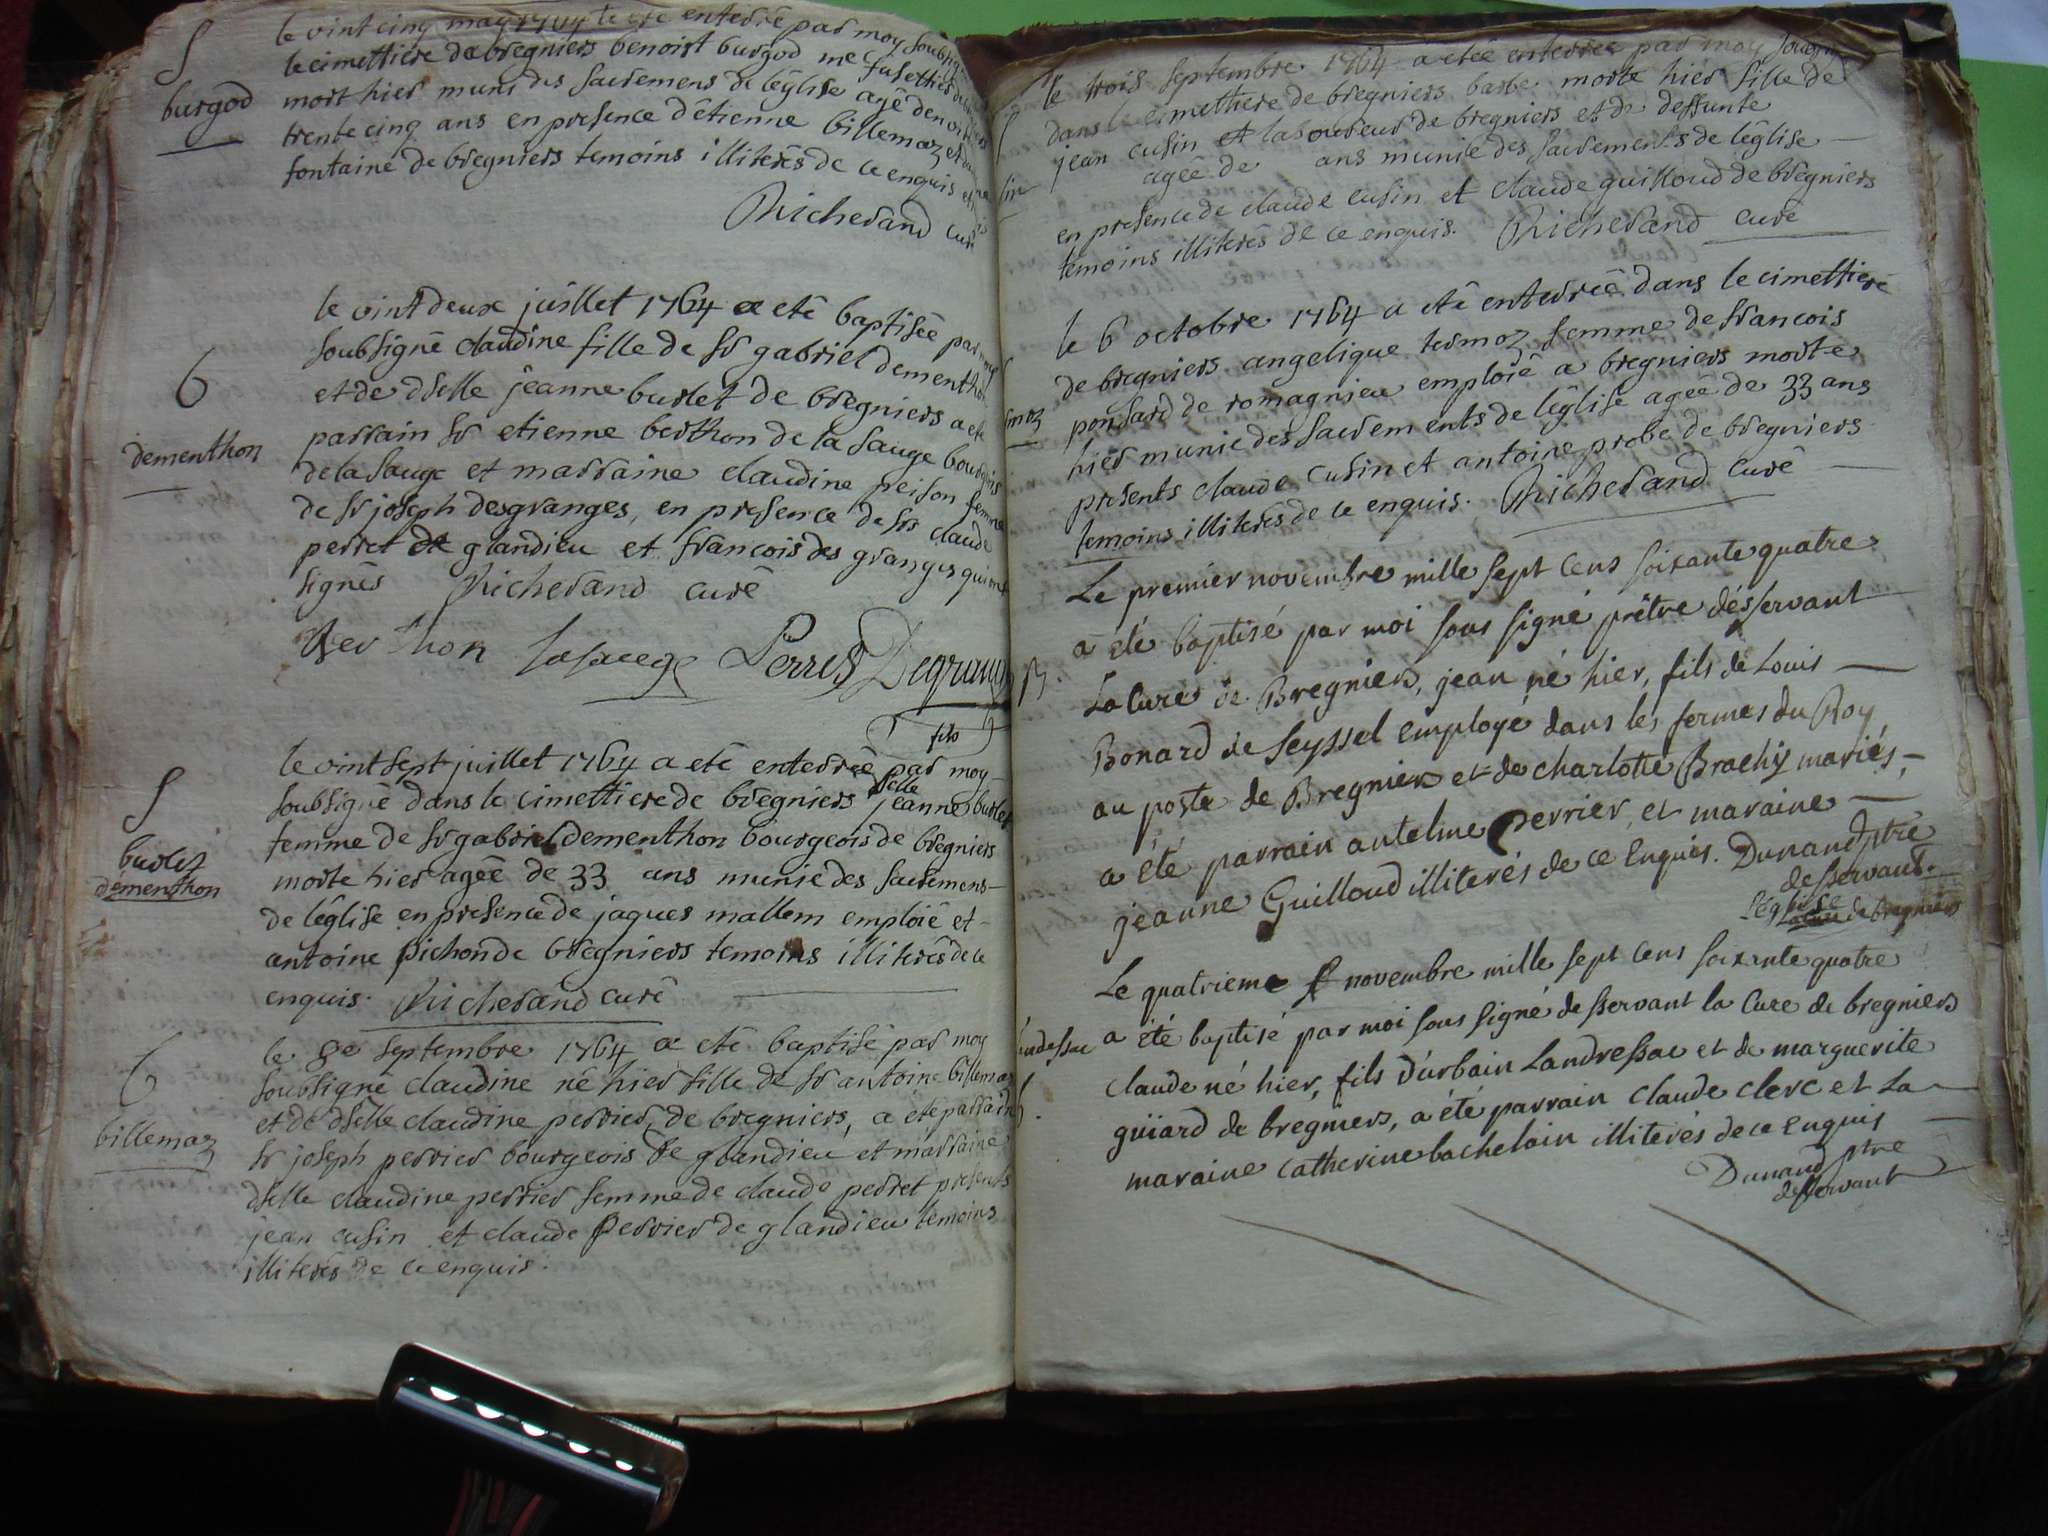 le vint cinq may 1764 a été enterré par moy soubsigné
S
le cimettiere de bregniers benoist burgod me
burgod
mort hier muni des sacremens de léglise agé denviron
trente cinq ans en presence détienne billemaz et
fontaine de bregniers temoins illiterés de ce enquis
Richerand curé
le vint deux juillet 1764 a eté baptisée par moy
soubsigné claudine fille de sr gabriel dementhon
6
et de dselle jeanne burlet de bregniers a eté
dementhon
parrain sr etienne berthon de la sauge bourgeois
de la sauge et marraine claudine peison femme
de sr joseph desgranges, en presence de srs claude
perret de glandieu et francois des granges qui ont
signés Richerand curé
Berthon lasauge Perret Degrange
fils
le vint sept juillet 1764 a eté enterrée par moy
soubsigné dans le cimettiere de bregniers dselle jeanne burlet
S
femme de sr gabriel dementhon bourgeois de bregniers
burlet
dementhon
morte hier agée de 33 ans munie des sacremens
de léglise en presence de jaques mallem emploié et
antoine pichon de bregniers temoins illiterés de ce
enquis. Richerand curé
le 8e septembre 1764 a eté baptisé par moy
6
soubsigné claudine né hier fille de sr antoine billemaz
et de dselle claudine perrier, de bregniers, a été parrain
billemaz
sr joseph perrier bourgeois de glandieu et marraine
dselle claudine perrier femme de claude perret presents
jean cusin et claude perrier de glandieu temoins
illiterés de ce enquis.
le trois septembre 1764 a etée enterrée par moy soubsigné
dans le cimettiere de bregniers barbe morte hier fille de
jean cusin et laboureur de bregniers et de deffunte
agée de ans munie des sacrements de léglise
en presence de claude cusin et claude guilloud de bregniers
temoins illiterés de ce enquis. Richerand curé
le 6 octobre 1764 a eté enterrée dans le cimettiere
de bregniers angelique termoz femme de francois
ponsard de romagnieu emploié a bregniers morte
hier munie des sacrements de léglise agée de 33 ans
presents claude cusin et antoine probe de bregniers
temoins illiterés de ce enquis. Richerand curé
Le premier novembre mille sept cens soixante quatre
a été baptisé par moi sous signé prêtre désservant
La Cure de Bregniers, jean né hier, fils de Louis
Bonard de Seyssel employé dans les fermes du Roy
au poste de Bregnier et de charlotte Brachy mariés,
a été parrain antelme Perrier, et maraine
jeanne Guilloud illiterés de ce Enquis. Dunand ptre
desservant
Léglise
de bregniers
Le quatrieme novembre mille sept cens soixante quatre
a été baptisé par moi sous signé desservant la Cure de bregniers
Claude né hier, fils d'urbain Landressac et de marguerite
guiard de bregniers, a été parrain Claude Clerc et La
maraine Catherine bachelain illiterés de ce Enquis
Dunand ptre
desservant